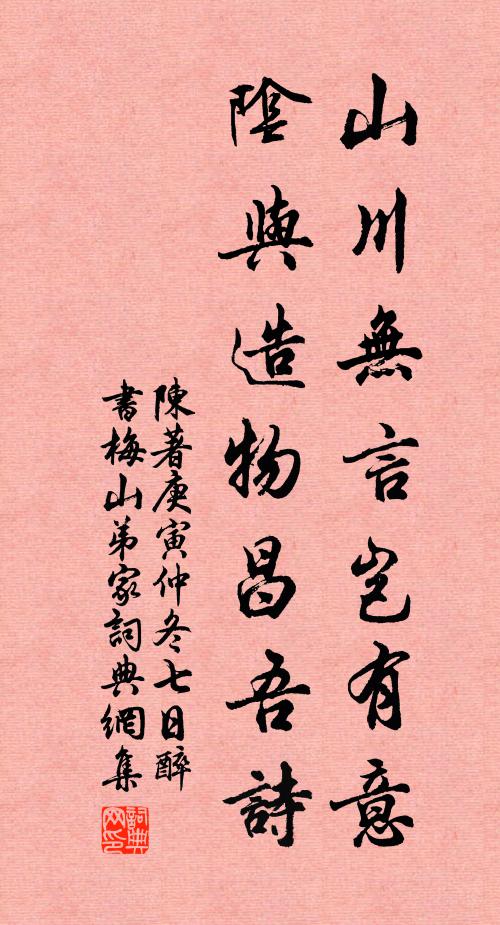 山川無言豈有意
陰與造物昌吾詩
陳著庚寅仲冬七日醉
書梅山弟家詞典網集
詞典
网印